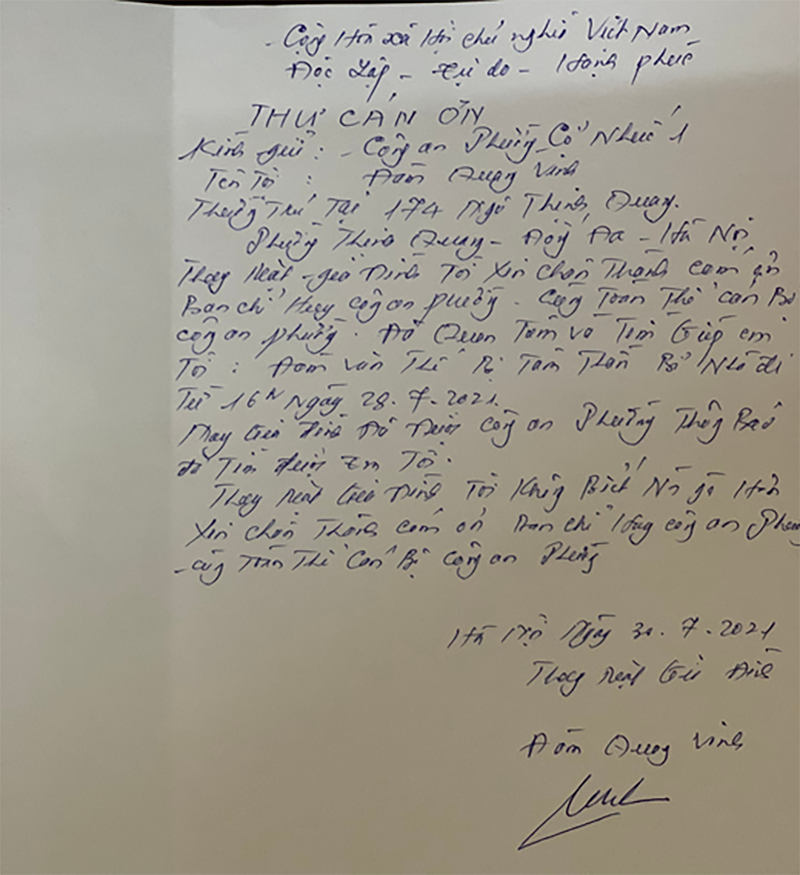 - Cộng Hòa xã Hội chủ nghĩa Việt Nam
Độc Lập - Tự do - Hạnh phúc
THƯ CẢM ƠN
Kính gửi : - Công an Phường Cổ Nhuế 1
Tên Tôi : Đàm Quang Vinh
Thường Trú Tại 174 Ngõ Thịnh Quang.
Phường Thịnh Quang - Đống Đa - Hà Nội
Thay Mặt - gia Đình Tôi Xin chân Thành cảm ơn
Ban chỉ Huy công an phường. Cùng Toàn Thể cán Bộ
công an phường. Đã Quan Tâm và Tìm Giúp em
Tôi : Đàm văn Thế Bị Tâm Thần Bỏ Nhà đi
Từ 16h Ngày 28.7.2021.
May gia đình Đã Được công an Phường Thông Báo
đã Tìm được Em Tôi.
Thay Mặt Gia Đình Tôi Không Biết Nói gì Hơn
Xin chân Thành cảm ơn Ban chỉ Huy công an Phường
- cùng Toàn Thể Cán Bộ công an Phường
Hà Nội Ngày 30.7.2021
Thay Mặt Gia Đình
Đàm Quang Vinh